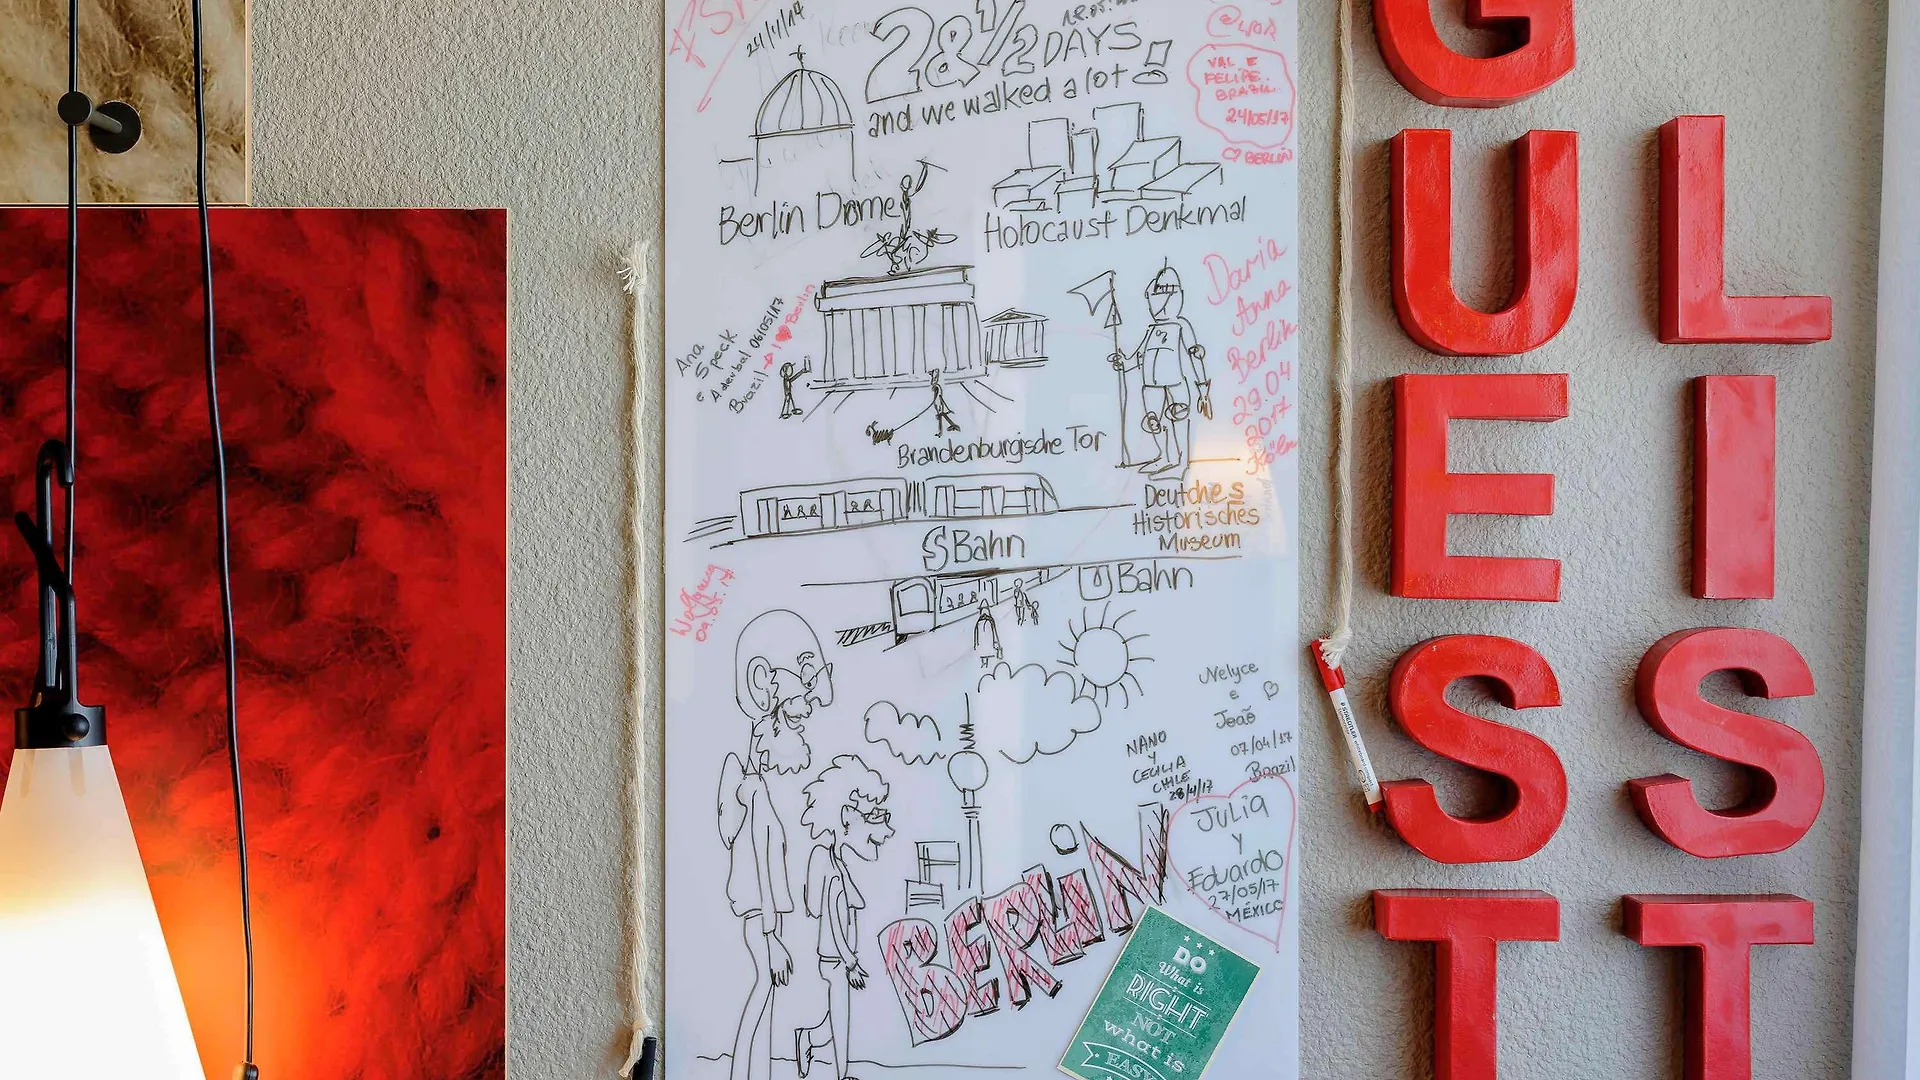 24/4/17
28 1/2 DAYS!
and we walked a lot
VAL E
FELIPE
BRAZIL
24/05/17
♡ BERLIN
Berlin Dome
Holocaust Denkmal
Ana
Speck
e Aderbal 06/05/17
Brazil → I ♥ Berlin
Daria
Anna
Berlin
29.04
2017
Köln
Brandenburgische Tor
Deutches
Historisches
Museum
S Bahn
U Bahn
Wolfgang
09.05.17
Nelyce
e ♡
João
07/04/17
Brazil
NANO
Y
CECILIA
CHILE
28/4/17
Julia
y
Eduardo
27/05/17
MÉXICO
BERLiN
DO
What is
RIGHT
NOT
what is
EASY
GUEST
LIST
STAEDTLER